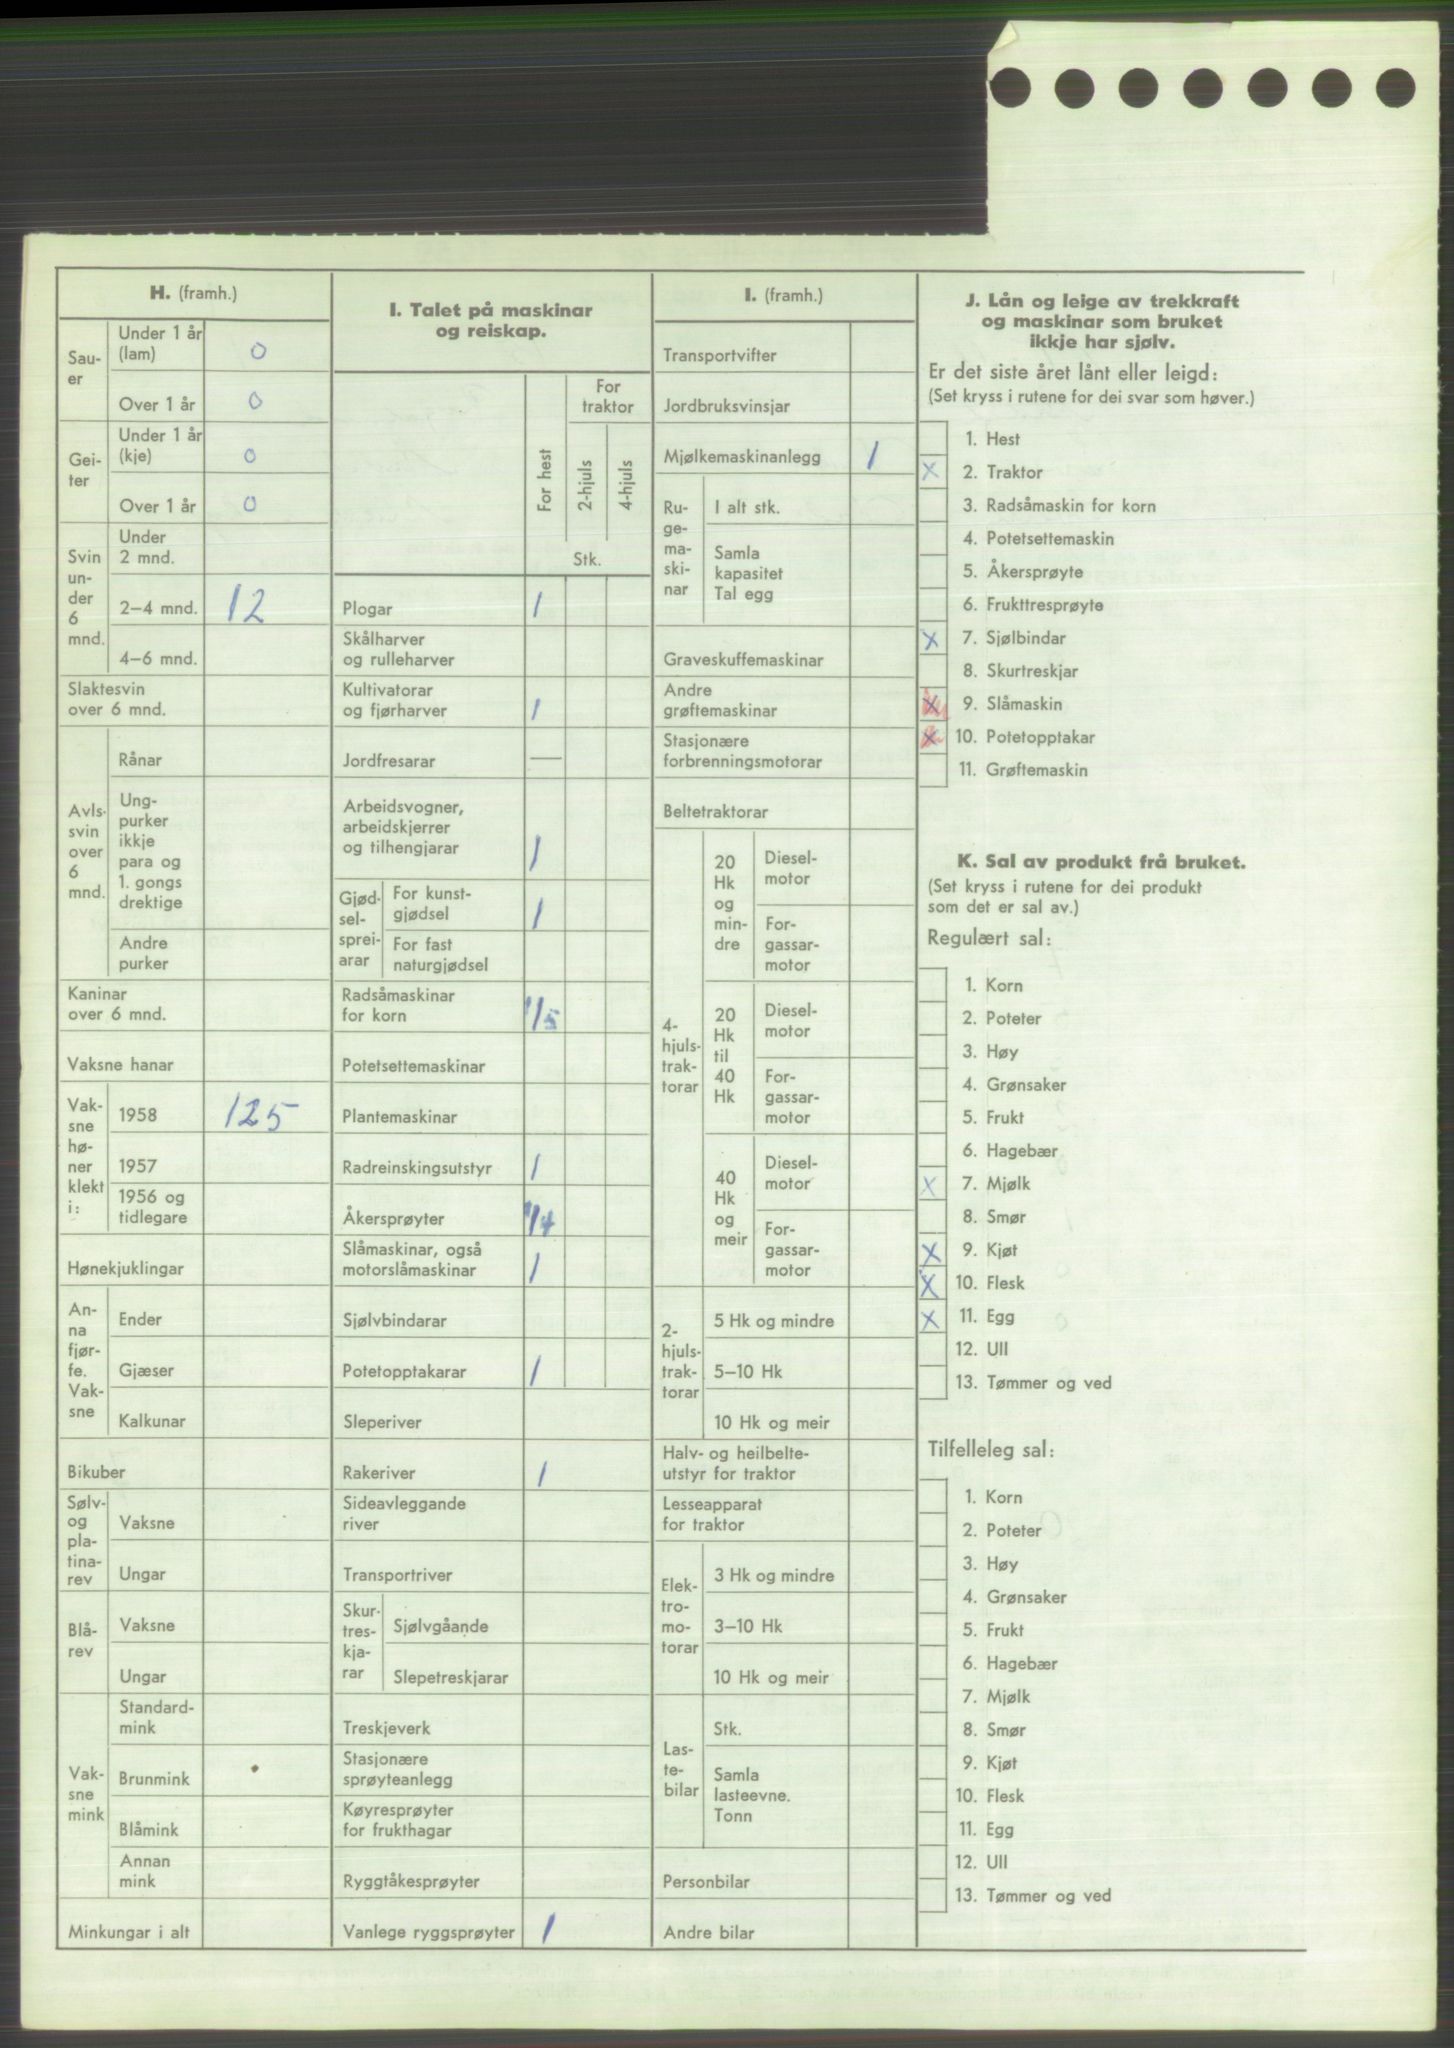 H. (framh.)
Sau-
er
Under 1 år
(lam) 0
Over 1 år 0
Gei-
ter
Under 1 år
(kje) 0
Over 1 år 0
Svin
un-
der
6
mnd.
Under
2 mnd.
2–4 mnd. 12
4–6 mnd.
Slaktesvin
over 6 mnd.
Avls-
svin
over
6
mnd.
Rånar
Ung-
purker
ikkje
para og
1. gongs
drektige
Andre
purker
Kaninar
over 6 mnd.
Vaksne hanar
Vak-
sne
hø-
ner
klekt
i:
1958 125
1957
1956 og
tidlegare
Hønekjuklingar
An-
na
fjør-
fe.
Vak-
sne
Ender
Gjæser
Kalkunar
Bikuber
Sølv-
og
pla-
tina-
rev
Vaksne
Ungar
Blå-
rev
Vaksne
Ungar
Vak-
sne
mink
Standard-
mink
Brunmink
Blåmink
Annan
mink
Minkungar i alt
I. Talet på maskinar
og reiskap.
For hest
For
traktor
2-hjuls
4-hjuls
Stk.
Plogar 1
Skålharver
og rulleharver
Kultivatorar
og fjørharver 1
Jordfresarar —
Arbeidsvogner,
arbeidskjerrer
og tilhengjarar 1
Gjød-
sel-
sprei-
arar
For kunst-
gjødsel 1
For fast
naturgjødsel
Radsåmaskinar
for korn 1/5
Potetsettemaskinar
Plantemaskinar
Radreinskingsutstyr 1
Åkersprøyter 1/4
Slåmaskinar, også
motorslåmaskinar 1
Sjølvbindarar
Potetopptakarar 1
Sleperiver
Rakeriver 1
Sideavleggande
river
Transportriver
Skur-
tres-
kja-
rar
Sjølvgåande
Slepetreskjarar
Treskjeverk
Stasjonære
sprøyteanlegg
Køyresprøyter
for frukthagar
Ryggtåkesprøyter
Vanlege ryggsprøyter 1
I. (framh.)
Transportvifter
Jordbruksvinsjar
Mjølkemaskinanlegg 1
Ru-
ge-
ma-
ski-
nar
I alt stk.
Samla
kapasitet
Tal egg
Graveskuffemaskinar
Andre
grøftemaskinar
Stasjonære
forbrenningsmotorar
Beltetraktorar
4-
hjuls-
trak-
torar
20
Hk
og
min-
dre
Diesel-
motor
For-
gassar-
motor
20
Hk
til
40
Hk
Diesel-
motor
For-
gassar-
motor
40
Hk
og
meir
Diesel-
motor
For-
gassar-
motor
2-
hjuls-
trak-
torar
5 Hk og mindre
5–10 Hk
10 Hk og meir
Halv- og heilbelte-
utstyr for traktor
Lesseapparat
for traktor
Elek-
tro-
mo-
torar
3 Hk og mindre
3–10 Hk
10 Hk og meir
Las-
te-
bilar
Stk.
Samla
lasteevne.
Tonn
Personbilar
Andre bilar
J. Lån og leige av trekkraft
og maskinar som bruket
ikkje har sjølv.
Er det siste året lånt eller leigd:
(Set kryss i rutene for dei svar som høver.)
1. Hest
x 2. Traktor
3. Radsåmaskin for korn
4. Potetsettemaskin
5. Åkersprøyte
6. Frukttresprøyte
x 7. Sjølbindar
8. Skurtreskjar
x 9. Slåmaskin
x 10. Potetopptakar
11. Grøftemaskin
K. Sal av produkt frå bruket.
(Set kryss i rutene for dei produkt
som det er sal av.)
Regulært sal:
1. Korn
2. Poteter
3. Høy
4. Grønsaker
5. Frukt
6. Hagebær
x 7. Mjølk
8. Smør
x 9. Kjøt
x 10. Flesk
x 11. Egg
12. Ull
13. Tømmer og ved
Tilfelleleg sal:
1. Korn
2. Poteter
3. Høy
4. Grønsaker
5. Frukt
6. Hagebær
7. Mjølk
8. Smør
9. Kjøt
10. Flesk
11. Egg
12. Ull
13. Tømmer og ved